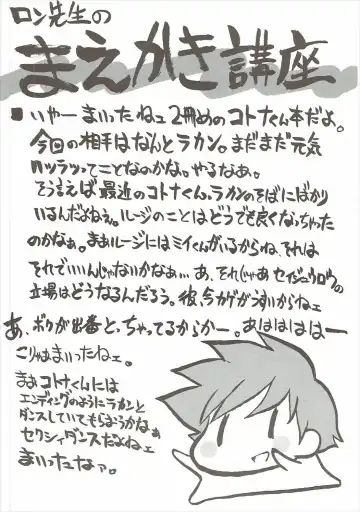 ロン先生の
まえがき講座
■いやー まいったねェ 2冊めのコトナくん本だよ。
今回の相手はなんとラカン。まだまだ元気
ハツラツってことなのかな。やるなあ。
そう言えば最近のコトナくん、ラカンのそばにばかり
いるんだよねぇ。ルージのことはどうでも良くなっちゃった
のかなぁ。まぁルージにはミイくんがいるからね、それは
それでいいんじゃないかなぁ… あ、それじゃあ セイジュウロウの
立場はどうなるんだろう。彼、今カゲがうすいからねェ
あ、ボクが出番とっちゃってるからかー。あははははー
こりゃあまいったねェ。
まぁコトナくんには
エンディングのようにラカンと
ダンスしていてもらおうかなぁ
セクシィダンスだよねェ
まいったなァ。